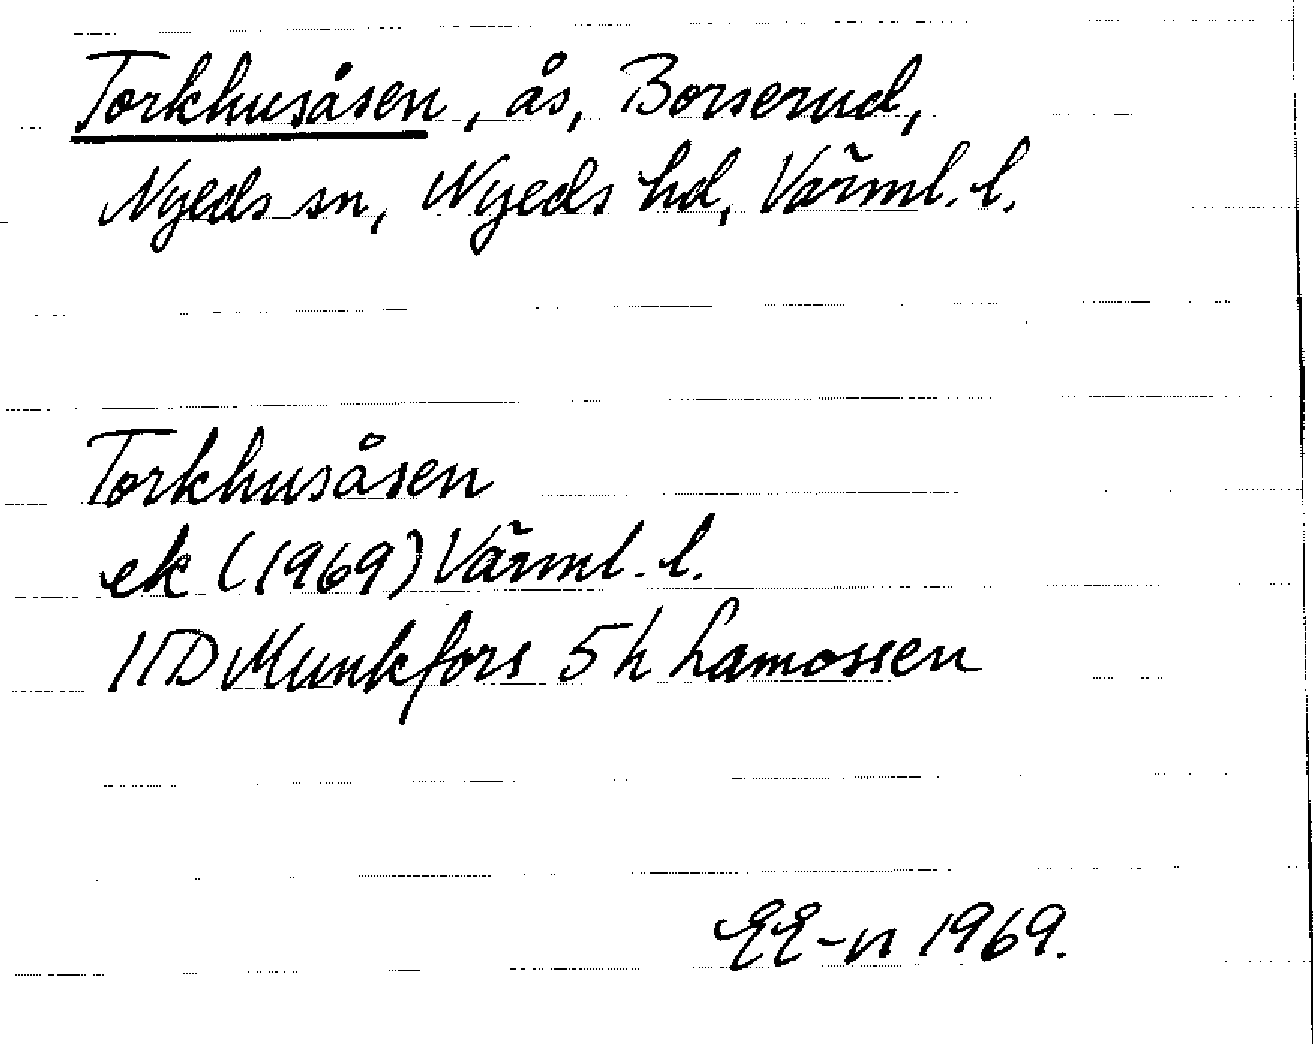 Torkhusåsen, ås, Borserud,
Nyeds sn, Nyeds hd, Värml. l.
Torkhusåsen
ek (1969) Värml. l.
11D Munkfors 5h Lamossen
EE-n 1969.